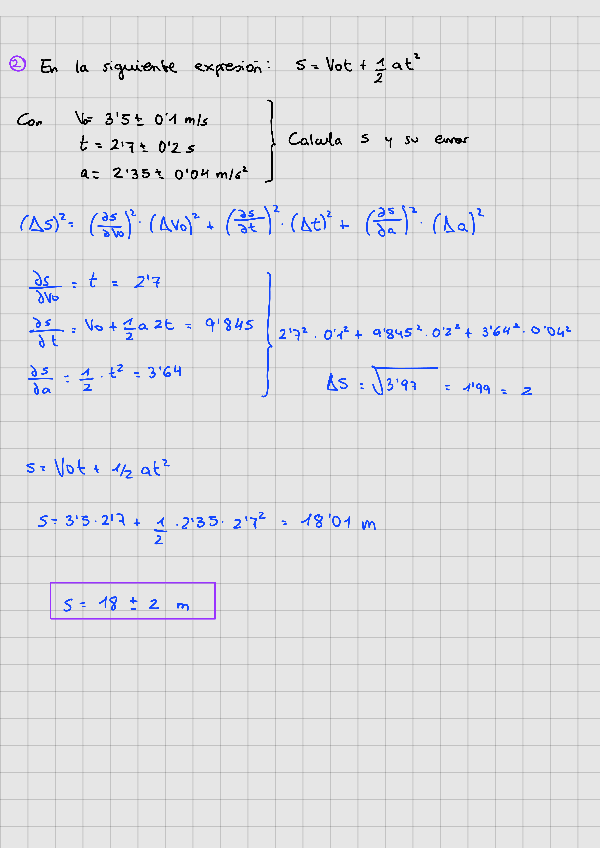 ② En la siguiente expresión: s = Vot + 1/2 at²
Con Vo= 3'5 ± 0'1 m/s
t = 2'7 ± 0'2 s
a = 2'35 ± 0'04 m/s²
Calcula s y su error
(Δs)² = (∂s/∂Vo)² · (ΔVo)² + (∂s/∂t)² · (Δt)² + (∂s/∂a)² · (Δa)²
∂s/∂Vo = t = 2'7
∂s/∂t = Vo + 1/2 a 2t = 9'845
∂s/∂a = 1/2 · t² = 3'64
2'7² · 0'1² + 9'845² · 0'2² + 3'64² · 0'04²
ΔS = √3'97 = 1'99 = 2
s = Vot + 1/2 at²
S = 3'5 · 2'7 + 1/2 · 2'35 · 2'7² = 18'01 m
S = 18 ± 2 m